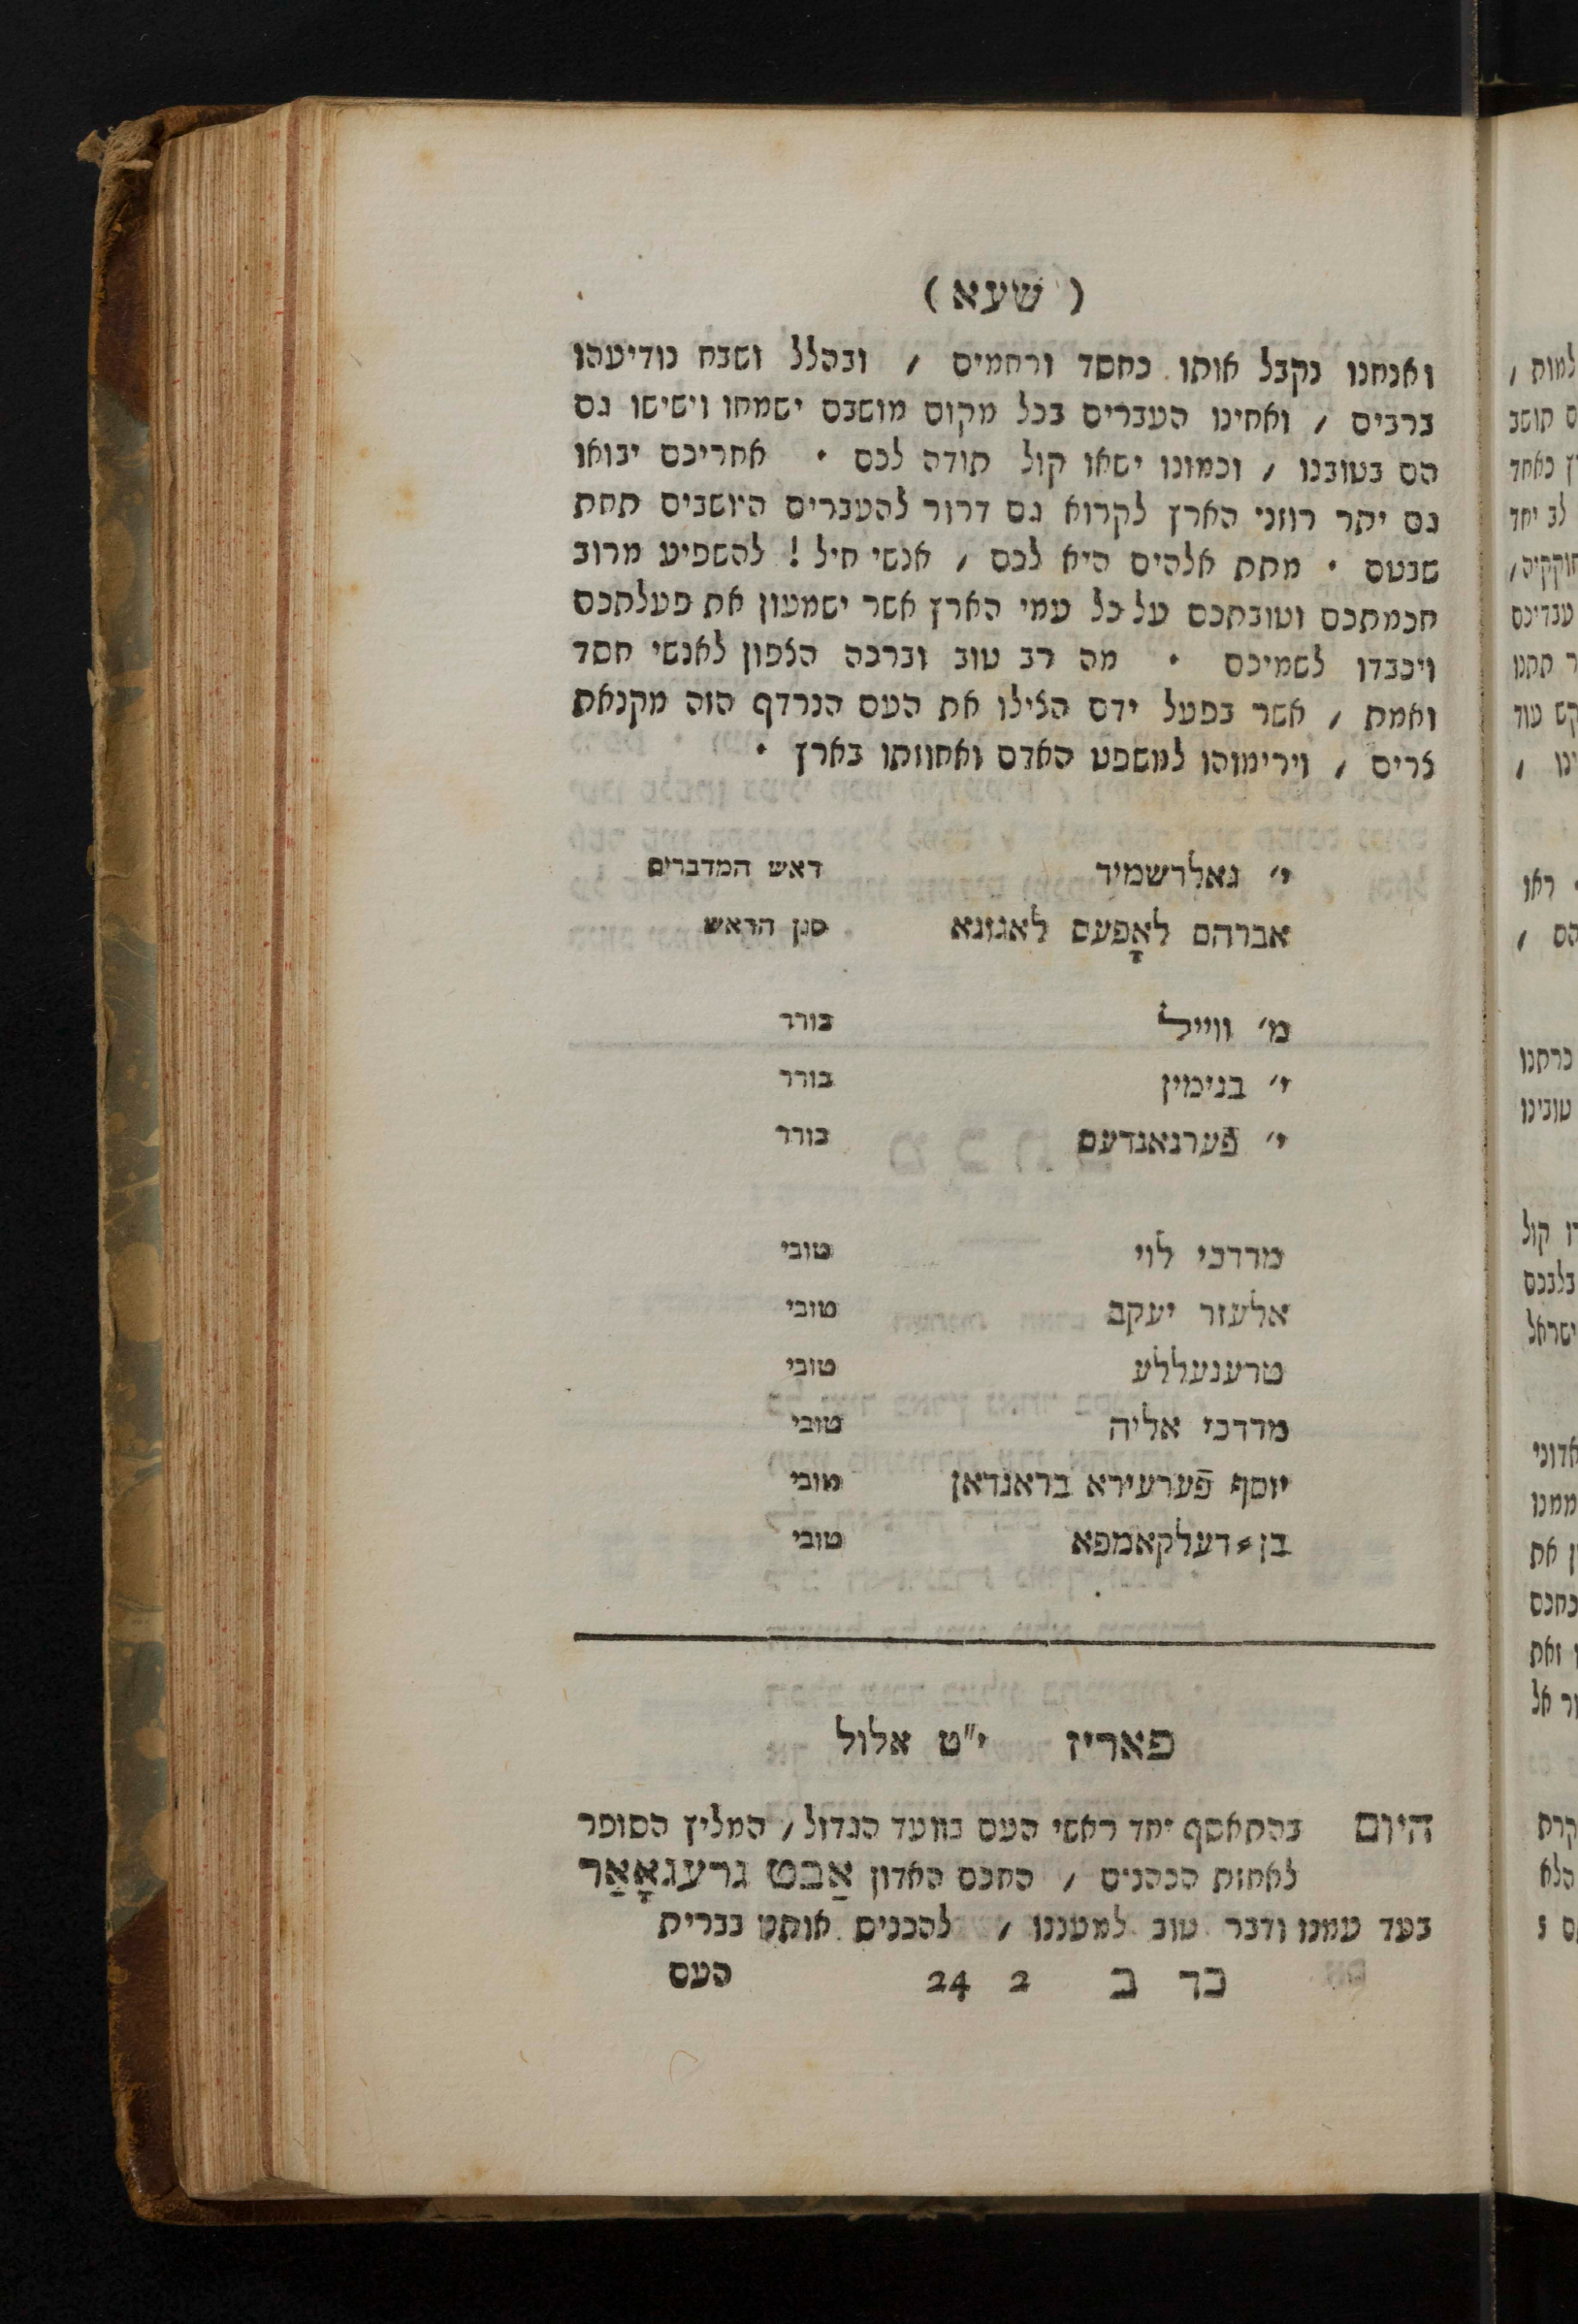 ( שעא )
ואנחנו נקבל אותו כחסד ורחמים / ובהלל ושבח נודיעהו
ברבים / ואחינו העברים בכל מקום מושבם ישמחו וישישו גם
הם בטובנו / וכמונו ישאו קול תודה לכם • אחריכם יבואו
גם יתר רוזני הארץ לקרוא גם דרור להעברים היושבים תחת
שבטם • מתת אלהים היא לכם / אנשי חיל ! להשפיע מרוב
חכמתכם וטובתכם על כל עמי הארץ אשר ישמעון את פעלתכם
ויכבדו לשמיכם • מה רב טוב וברכה הצפון לאנשי חסד
ואמת / אשר בפעל ידם הצילו את העם הנרדף הזה מקנאת
צרים / וירימוהו למשפט האדם ואחוזתו בארץ •
י׳ גאלדשמיד ראש המדברים
אברהם לאָפעס לאגונא סגן הראש
מ׳ ווייל בורר
י׳ בנימין בורר
י׳ פֿערנאנדעס בורר
מרדכי לוי טובי
אלעזר יעקב טובי
טרענעללע טובי
מרדכי אליה טובי
יוסף פֿערעירא בראנדאן טובי
בן⸗דעלקאמפא טובי
פאריז י״ט אלול
היום בהתאסף יחד ראשי העם בוועד הגדול / המליץ הסופר
לאחזת הכהנים / החכם האדון אַבט גרעגאָאַר
בעד עמנו ודבר טוב למעננו / להכניס אותנו בברית
כד ב 2 24 העם